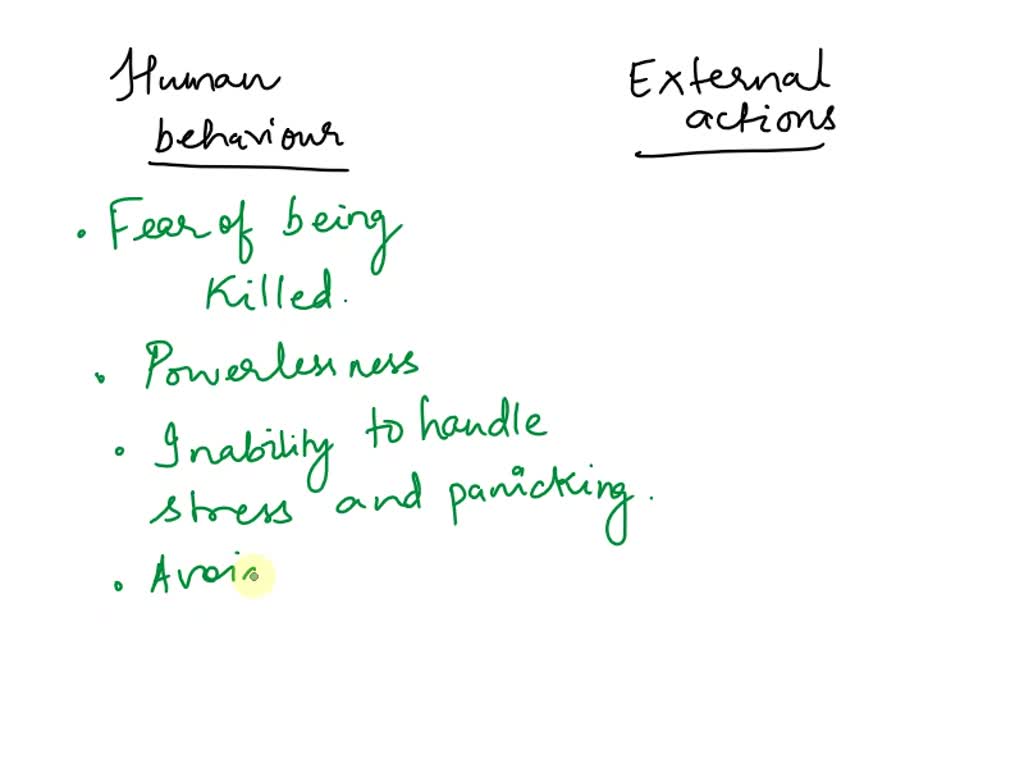 Human
behaviour
External
actions
. Fear of being
Killed.
. Powerlessness
. Inability to handle
stress and panicking.
. Avoi